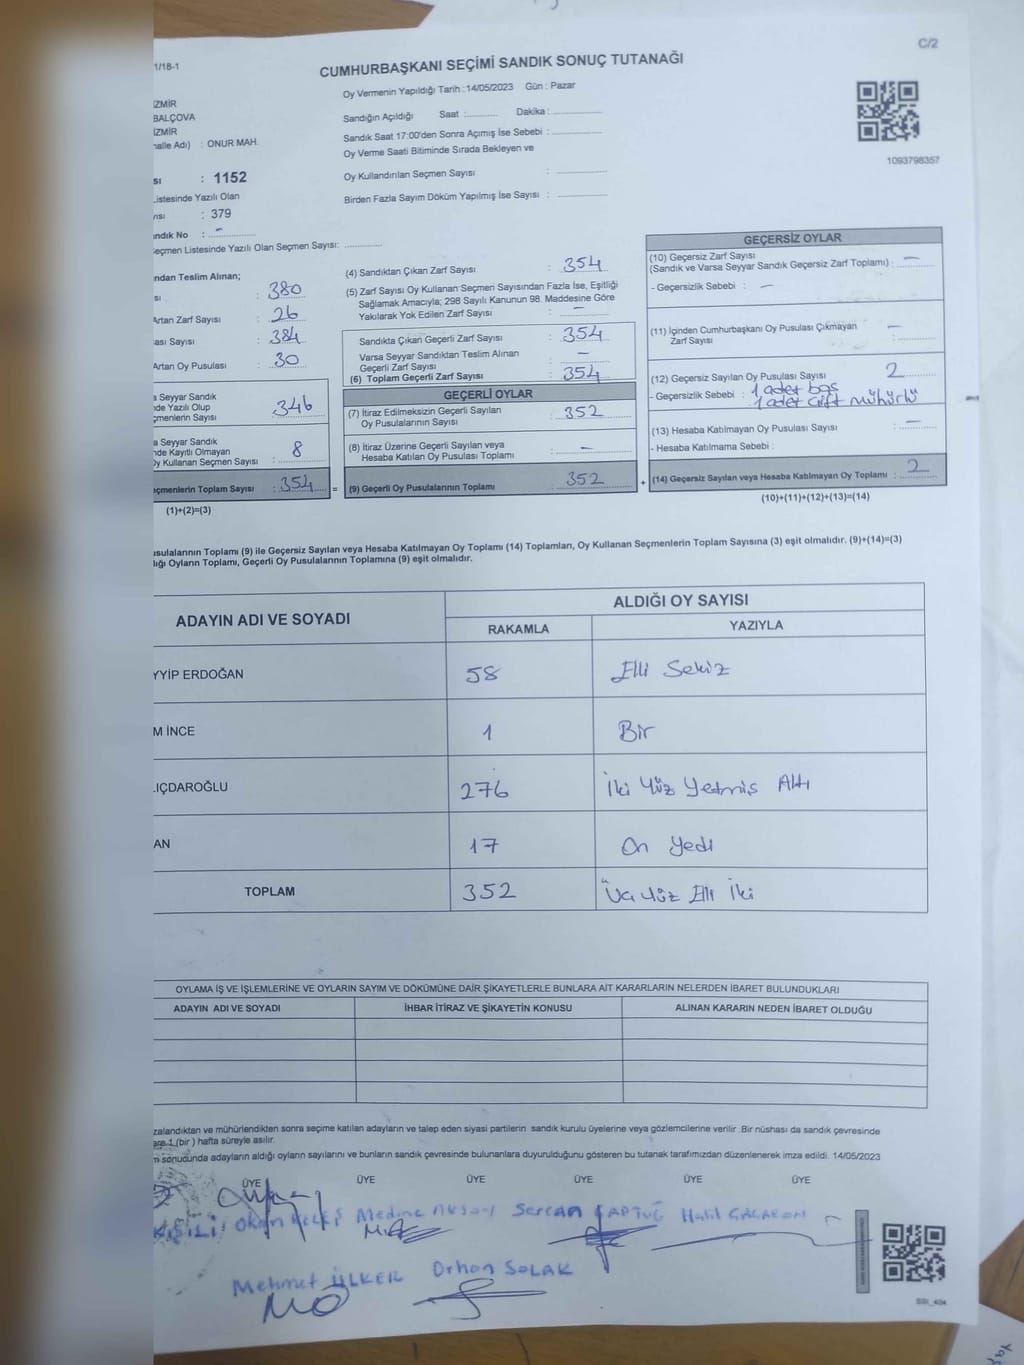 C/2
1/18-1
CUMHURBAŞKANI SEÇİMİ SANDIK SONUÇ TUTANAĞI
Oy Vermenin Yapıldığı Tarih :14/05/2023 Gün : Pazar
Sandığın Açıldığı Saat : Dakika :
Sandık Saat 17:00'den Sonra Açımış İse Sebebi :
Oy Verme Saati Bitiminde Sırada Bekleyen ve
Oy Kullandırılan Seçmen Sayısı :
Birden Fazla Sayım Döküm Yapılmış İse Sayısı :
1093798357
İZMİR
BALÇOVA
İZMİR
halle Adı) : ONUR MAH.
sı : 1152
Listesinde Yazılı Olan
yısı : 379
ndık No : -
eçmen Listesinde Yazılı Olan Seçmen Sayısı:
ndan Teslim Alınan;
sı : 380
Artan Zarf Sayısı : 26
ası Sayısı : 384
Artan Oy Pusulası : 30
a Seyyar Sandık
nde Yazılı Olup
çmenlerin Sayısı 346
a Seyyar Sandık
nde Kayıtlı Olmayan
Oy Kullanan Seçmen Sayısı : 8
çmenlerin Toplam Sayısı : 354 =
(1)+(2)=(3)
(4) Sandıktan Çıkan Zarf Sayısı : 354
(5) Zarf Sayısı Oy Kullanan Seçmen Sayısından Fazla İse, Eşitliği
Sağlamak Amacıyla; 298 Sayılı Kanunun 98. Maddesine Göre
Yakılarak Yok Edilen Zarf Sayısı : -
Sandıkta Çıkan Geçerli Zarf Sayısı : 354
Varsa Seyyar Sandıktan Teslim Alınan
Geçerli Zarf Sayısı : -
(6) Toplam Geçerli Zarf Sayısı : 354
GEÇERLİ OYLAR
(7) İtiraz Edilmeksizin Geçerli Sayılan
Oy Pusulalarının Sayısı : 352
(8) İtiraz Üzerine Geçerli Sayılan veya
Hesaba Katılan Oy Pusulası Toplamı : -
(9) Geçerli Oy Pusulalarının Toplamı : 352 +
GEÇERSİZ OYLAR
(10) Geçersiz Zarf Sayısı
(Sandık ve Varsa Seyyar Sandık Geçersiz Zarf Toplamı) : -
- Geçersizlik Sebebi : -
(11) İçinden Cumhurbaşkanı Oy Pusulası Çıkmayan
Zarf Sayısı : -
(12) Geçersiz Sayılan Oy Pusulası Sayısı : 2
- Geçersizlik Sebebi : 1 adet boş
1 adet çift mühürlü
(13) Hesaba Katılmayan Oy Pusulası Sayısı : -
- Hesaba Katılmama Sebebi :
(14) Geçersiz Sayılan veya Hesaba Katılmayan Oy Toplamı : 2
(10)+(11)+(12)+(13)=(14)
usulalarının Toplamı (9) ile Geçersiz Sayılan veya Hesaba Katılmayan Oy Toplamı (14) Toplamları, Oy Kullanan Seçmenlerin Toplam Sayısına (3) eşit olmalıdır. (9)+(14)=(3)
lığı Oyların Toplamı, Geçerli Oy Pusulalarının Toplamına (9) eşit olmalıdır.
ADAYIN ADI VE SOYADI ALDIĞI OY SAYISI
RAKAMLA YAZIYLA
YYİP ERDOĞAN 58 Elli Sekiz
M İNCE 1 Bir
IÇDAROĞLU 276 İki Yüz Yetmiş Altı
AN 17 On Yedi
TOPLAM 352 Üç Yüz Elli İki
OYLAMA İŞ VE İŞLEMLERİNE VE OYLARIN SAYIM VE DÖKÜMÜNE DAİR ŞİKAYETLERLE BUNLARA AİT KARARLARIN NELERDEN İBARET BULUNDUKLARI
ADAYIN ADI VE SOYADI İHBAR İTİRAZ VE ŞİKAYETİN KONUSU ALINAN KARARIN NEDEN İBARET OLDUĞU
zalandıktan ve mühürlendikten sonra seçime katılan adayların ve talep eden siyasi partilerin sandık kurulu üyelerine veya gözlemcilerine verilir. Bir nüshası da sandık çevresinde
are 1 (bir ) hafta süreyle asılır.
m sonucunda adayların aldığı oyların sayılarını ve bunların sandık çevresinde bulunanlara duyurulduğunu gösteren bu tutanak tarafımızdan düzenlenerek imza edildi. 14/05/2023
ÜYE ÜYE ÜYE ÜYE ÜYE ÜYE
Okan Medine Aksoy Sercan Halil
Mehmet ÜLKER Orhan SOLAK